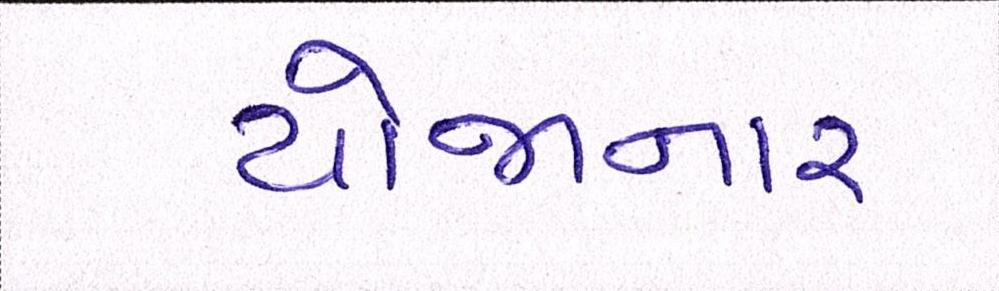 યોજાનાર